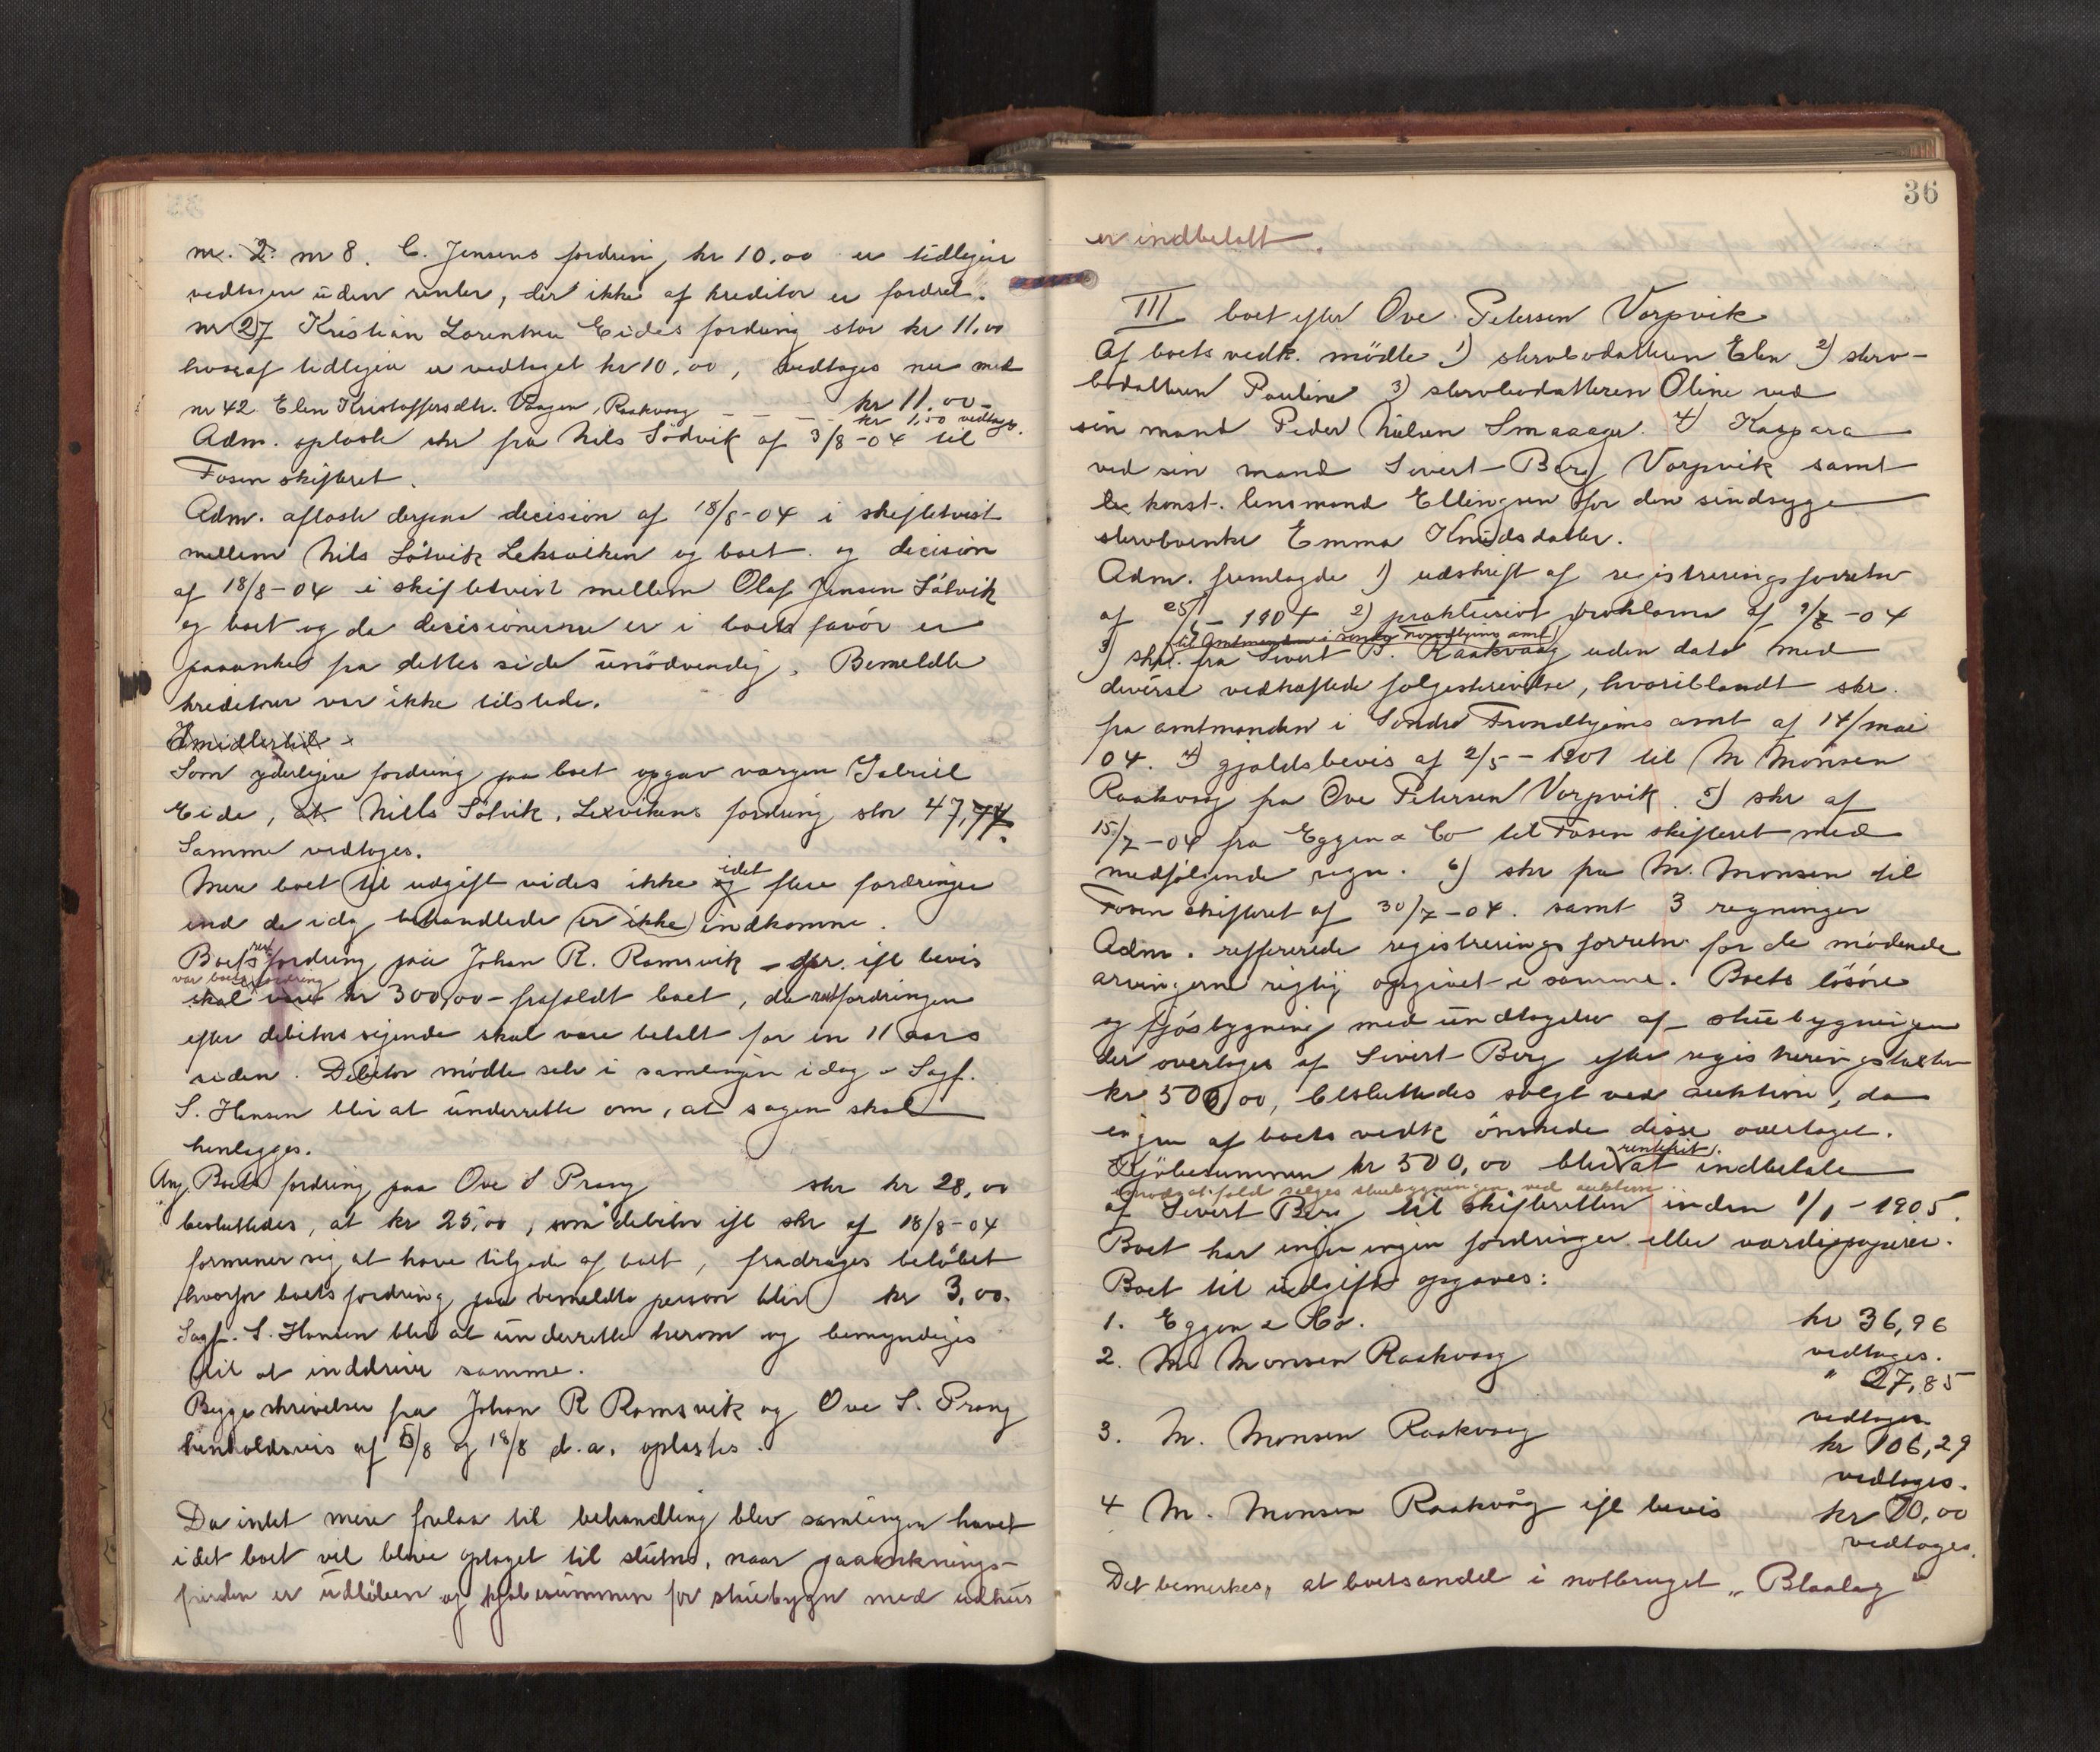 nr. 2. nr 8. C. Jensens fordring kr 10.00 er tidligere
vedtagen uden renter, der ikke af kreditor er fordret.
nr 27 Kristian Lorentsen Eides fordring stor kr 11.00
hvoraf tidligere er vedtaget kr 10,00, vedtages nu med
kr 11.00
nr 42 Elen Kristoffersdtr. Vaagen, Raakvaag - - - kr 1,50 vedtages.
Adm. oplæste skr fra Nils Södvik af 3/8-04 til
Fosen skifteret.
Adm. aflæste derpaa decision af 18/8-04 i skiftetvist
mellem Nils Sölvik Leksviken og boet og decision
af 18/8-04 i skiftetvist mellem Olaf Jensen Sölvik
og boet og da decisionerne er i boets favör er
paaanke fra dettes side unödvendig. Bemeldte
kreditorer var ikke tilstede.
Imidlertid
Som yderligere fordring paa boet opgav værgen Gabriel
Eide, at Nills Sölvik, Lexvikens fordring stor 47,74.
Samme vedtages.
Mere boet til udgift vides ikke og idet flere fordringer
end de idag behandlede er ikke indkomne.
Boets rest fordring paa Johan R. Ramsvik - opr. ifl bevis
var boets fordring
skal være kr 300,00 - frafaldt boet, da restfordringen
efter debitors sigende skal være betalt for en 11 aars
siden. Debitor mödte selv i samlingen idag. Sagf.
S. Hansen blir at underrette om, at sagen skal
henlægges.
Ang. Boets fordring paa Ove S Prang skr kr 28,00
besluttedes, at kr 25,00, som debitor ifl skr af 18/8-04
formener sig at have tilgode af boet, fradrages belöbet
hvorfor boets fordring paa bemeldte person blir kr 3,00.
Sagf. S. Hansen blir at underrette herom og bemyndiges
til at inddrive samme.
Begge skrivelser fra Johan R Ramsvik og Ove S. Prang
henholdsvis af 5/8 og 18/8 d.a. oplæstes.
Da intet mere forelaa til behandling blev samlingen hævet
idet boet vil blive optaget til slutn. naar paaanknings-
fristen er udlöben og kjöbesummen for stuebygn med udhus
36
er indbetalt.
III boet efter Ove Petersen Vorpvik
Af boets vedk. mödte 1) stervbodatteren Elen 2) stervbo-
bodatteren Pauline 3) stervbodatteren Oline ved
sin mand Peder Nielsen Smaaage. 4) Kaspara
ved sin mand Sivert Berg Vorpvik samt
konst. lensmand Ellingsen for den sindsyge
stervboenke Emma Knudsdatter.
Adm. fremlagde 1) udskrift af registreringsforretn
af 25/ - 1904 2) proklama af -04
3) skr. fra Sivert B. Raakvaag uden dato med
til Amtmanden i søndre Trondhjems amt
diverse vedhæftede fölgeskrivelse, hvoriblandt skr.
fra amtmanden i Söndre Trondhjems amt af 14/mai
04. 4) gjældsbevis af 2/5-1901 til M Monsen
Raakvaag fra Ove Petersen Vorpvik. 5) skr af
15/7-04 fra Eggen & Co til Fosen skifteret med
medfölgende regn. 6) skr fra M. Monsen til
Fosen skifteret af 30/7-04. samt 3 regninger
Adm. reffererede registreringsforretn for de mödende
arvingerne rigtig opgivet i samme. Boets lösöre
og fjösbygning med undtagelse af stuebygningen
der overtages af Sivert Berg efter registreringstaxten
kr 500,00, besluttedes solgt ved auktion, da
ingen af boets vedk önskede disse overtaget.
Kjöbesummen kr 500,00 blir rentefrit at indbetale
i modsat fald sælges stuebygningen ved auktion
af Sivert Berg til skifteretten inden 1/1-1905.
Boet har ingen fordringer eller værdipapirer.
Boet til udgift opgaves:
1. Eggen & Co. kr 36,96
vedtages.
2. M. Monsen Raakvaag " 27,85
vedtages.
3. M. Monsen Raakvaag kr 106,29
vedtages.
4 M. Monsen Raakvåg ifl bevis kr 70,00
vedtages.
Det bemerkes, at boets andel i notbruget "Blaalag"